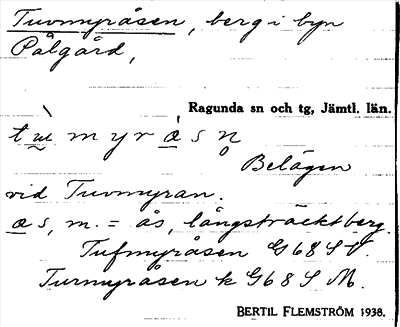 Tuvmyråsen, berg i byn
Pålgård,
Ragunda sn och tg, Jämtl. län.
Belägen
vid Tuvmyran.
as, m. = ås, långsträckt berg.
Tufmyråsen G68SV.
Turmyråsen k G68SM.
BERTIL FLEMSTRÖM 1938.